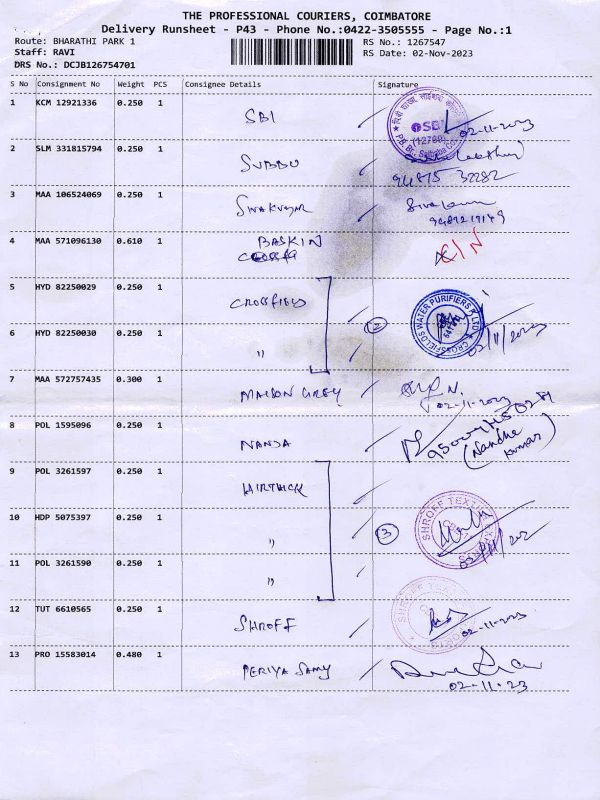 THE PROFESSIONAL COURIERS, COIMBATORE
Delivery Runsheet - P43 - Phone No.:0422-3505555 - Page No.:1
Route: BHARATHI PARK 1
RS No.: 1267547
Staff: RAVI
RS Date: 02-Nov-2023
DRS No.: DCJB126754701
S No Consignment No Weight PCS Consignee Details Signature
1 KCM 12921336 0.250 1 SBI SBI 02-11-2023
(12760)
2 SLM 331815794 0.250 1 SUBBU
94875 32282
3 MAA 106524069 0.250 1
4 MAA 571096130 0.610 1 BASKIN
5 HYD 82250029 0.250 1 CROSSFIELDS
CROSSFIELDS WATER PURIFIERS P LTD
2
6 HYD 82250030 0.250 1 "
7 MAA 572757435 0.300 1 MAISON GREY
02-11-2023
8 POL 1595096 0.250 1 NANDA
(Nandha Kumar)
9 POL 3261597 0.250 1
SHROFF TEXT
10 HDP 5075397 0.250 1 "
3
11 POL 3261590 0.250 1 "
12 TUT 6610565 0.250 1 SHROFF
SHROFF 02-11-2023
13 PRO 15583014 0.480 1 PERIYA SAMY
02-11-23